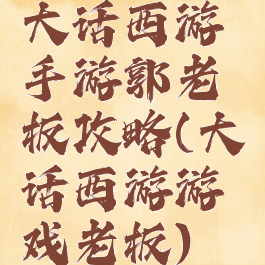 大话西游
手游郭老
板攻略(大
话西游游
戏老板)